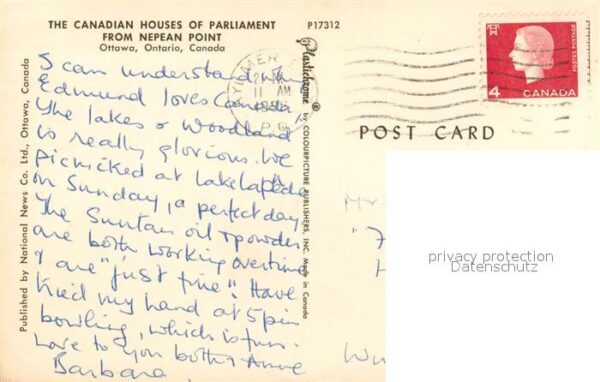 THE CANADIAN HOUSES OF PARLIAMENT
FROM NEPEAN POINT
Ottawa, Ontario, Canada
P17312
I can understand why
Edmund loves Canada
The lakes & woodland
is really glorious. We
picnicked at Lake
on Sunday, a perfect day
The Suntan oil & powder
are both working overtime
& are "just fine". Have
tried my hand at 5 pin
bowling, which is fun.
Love to you both & Anne
Barbara
Published by National News Co. Ltd., Ottawa, Canada
Plastichrome ® by COLOURPICTURE PUBLISHERS, INC. Made in Canada
AYLMER
11 AM
P.Q.
POSTES POSTAGE
4 CANADA
POST CARD
MY
"7
privacy protection
Datenschutz